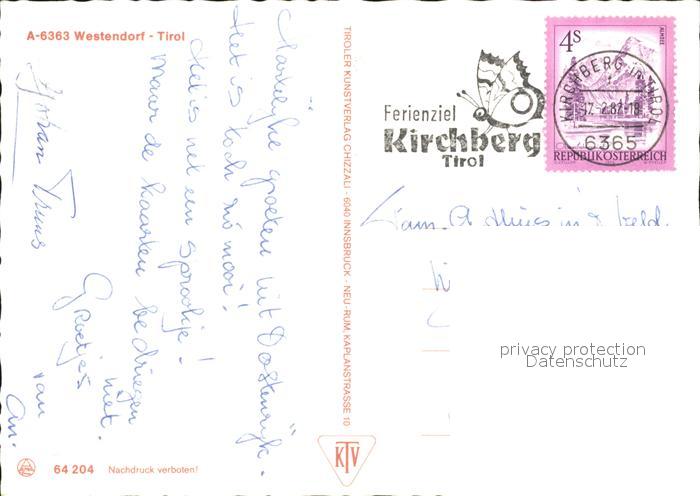 A-6363 Westendorf - Tirol
Hartelijke groeten uit Oostenrijk.
Het is toch zo mooi!
Het is net een sprookje!
Maar de kaarten bedriegen
niet.
Groetjes
van
An.
TIROLER KUNSTVERLAG CHIZZALI · 6040 INNSBRUCK - NEU-RUM, KAPLANSTRASSE 10
KTV
64 204 Nachdruck verboten!
Ferienziel
Kirchberg
Tirol
4S
ALMSEE
REPUBLIK ÖSTERREICH
KIRCHBERG IN TIROL
6365
Fam. A
privacy protection
Datenschutz